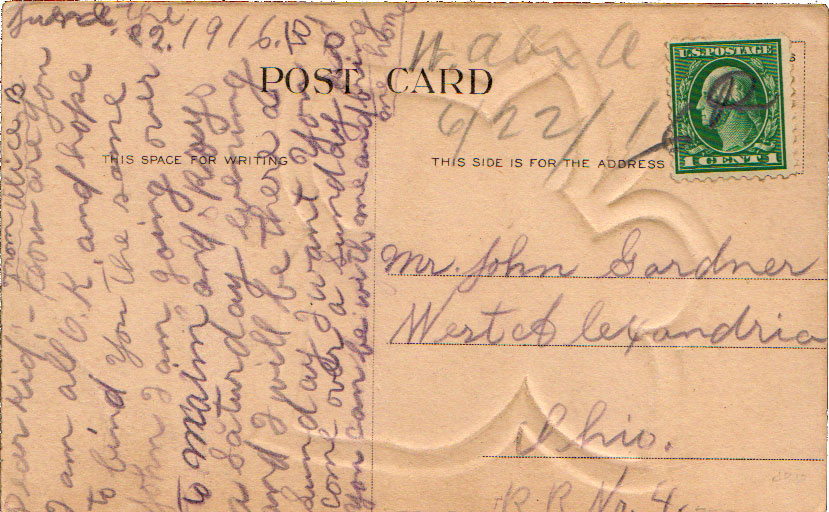 June the
22. 1916.
W. Alex O
6/22/1
U.S. POSTAGE
1 CENT 1
POST CARD
THIS SPACE FOR WRITING
THIS SIDE IS FOR THE ADDRESS
Mr John Gardner
West Alexandria
Ohio.
R R Nr. 4.
from Alice B
Dear Kid,- how are you
I am all O.K. and hope
to find you the same
John I am going over
to Malm and Rays
a Saturday evening
and I will be there a
Sunday I want you to
come over a Sunday so
you can be with me and bring
me home